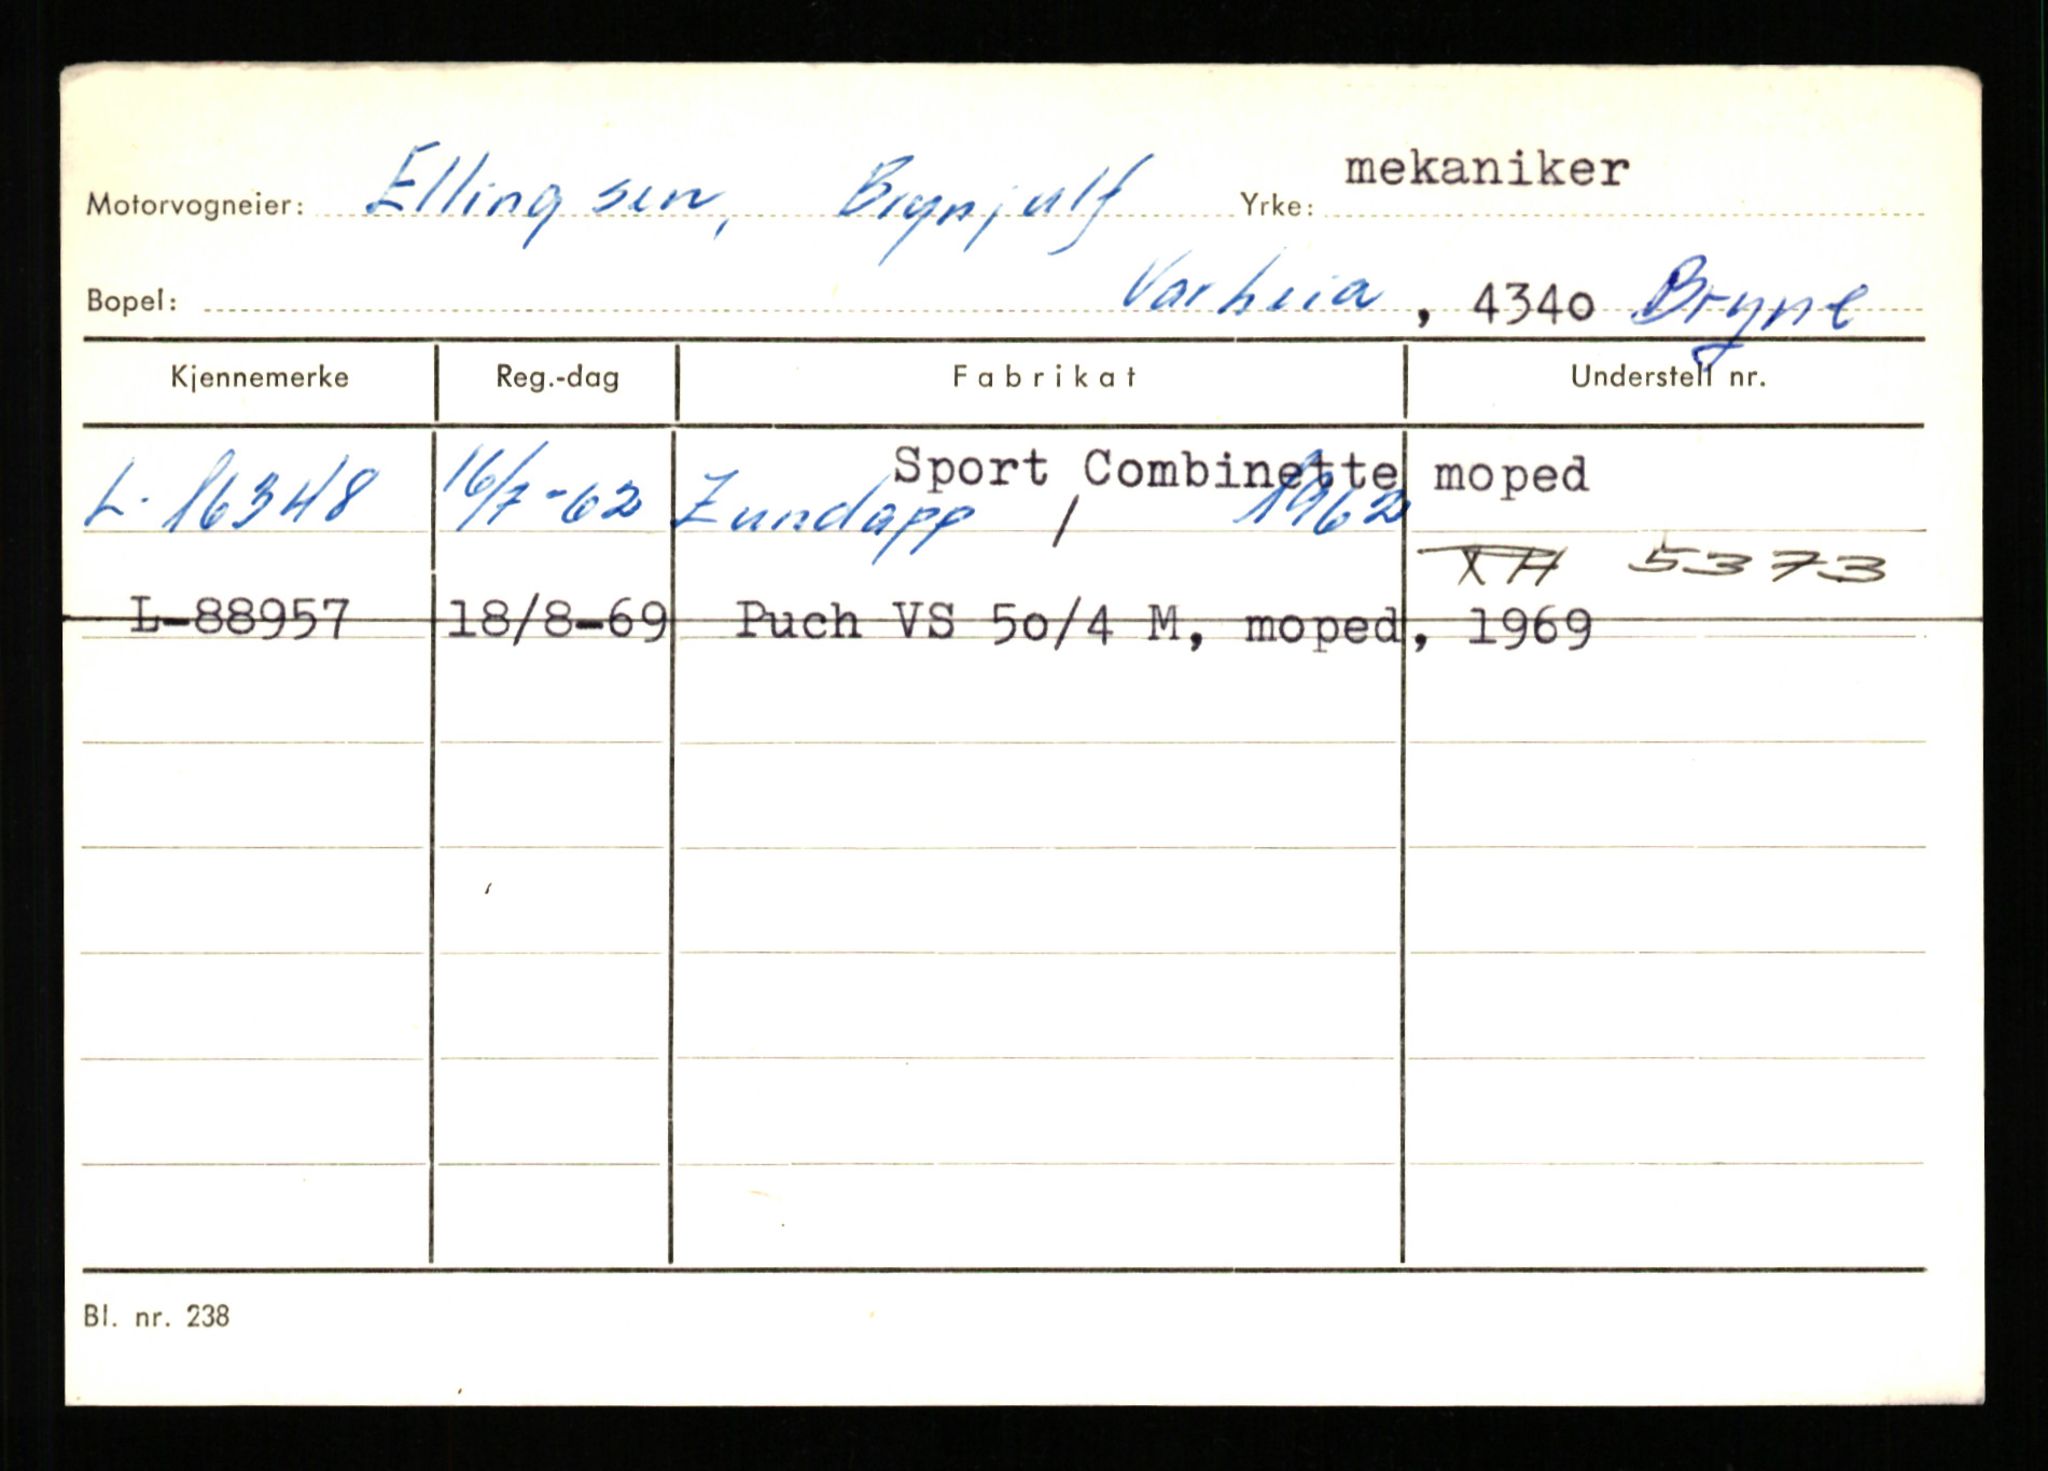 mekaniker
Motorvogneier: Ellingsen, Brynjulf Yrke:
Bopel: Varheia, 4340 Bryne
Kjennemerke Reg.-dag Fabrikat Understell nr.
Sport Combinette moped
L-16348 16/7-62 Zundapp / 1962
XH 5373
L-88957 18/8-69 Puch VS 50/4 M, moped, 1969
Bl. nr. 238